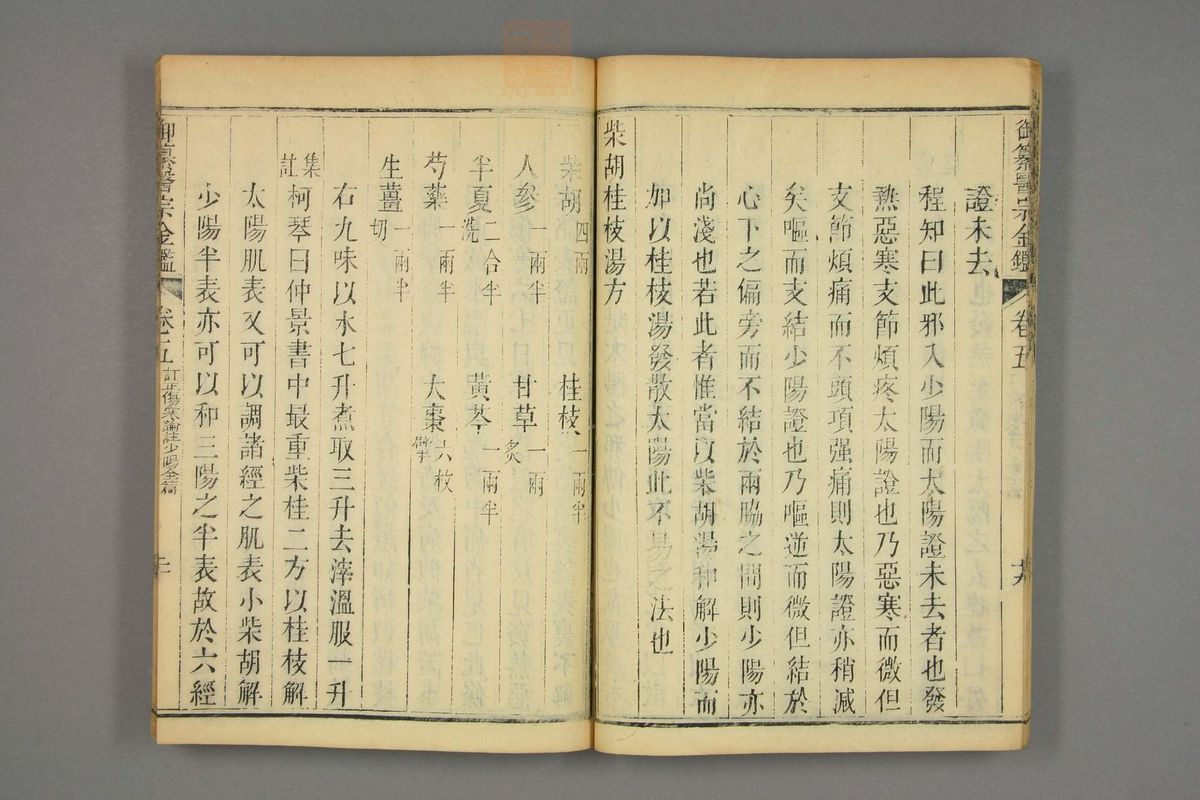 御纂醫宗金鑑 卷五
證未去
程知曰此邪入少陽而太陽證未去者也發
熱惡寒支節煩疼太陽證也乃惡寒而微但
支節煩痛而不頭項强痛則太陽證亦稍減
矣嘔而支結少陽證也乃嘔逆而微但結於
心下之偏旁而不結於兩脇之間則少陽亦
尚淺也若此者惟當以柴胡湯和解少陽而
加以桂枝湯發散太陽此不易之法也
柴胡桂枝湯方
柴胡四兩 桂枝一兩半
人參一兩半 甘草一兩炙
半夏二合半洗 黃芩一兩半
芍藥一兩半 大棗六枚擘
生薑一兩半切
右九味以水七升煮取三升去滓溫服一升
集註柯琴曰仲景書中最重柴桂二方以桂枝解
太陽肌表又可以調諸經之肌表小柴胡解
少陽半表亦可以和三陽之半表故於六經
御纂醫宗金鑑 卷五 訂正傷寒論註少陽全篇